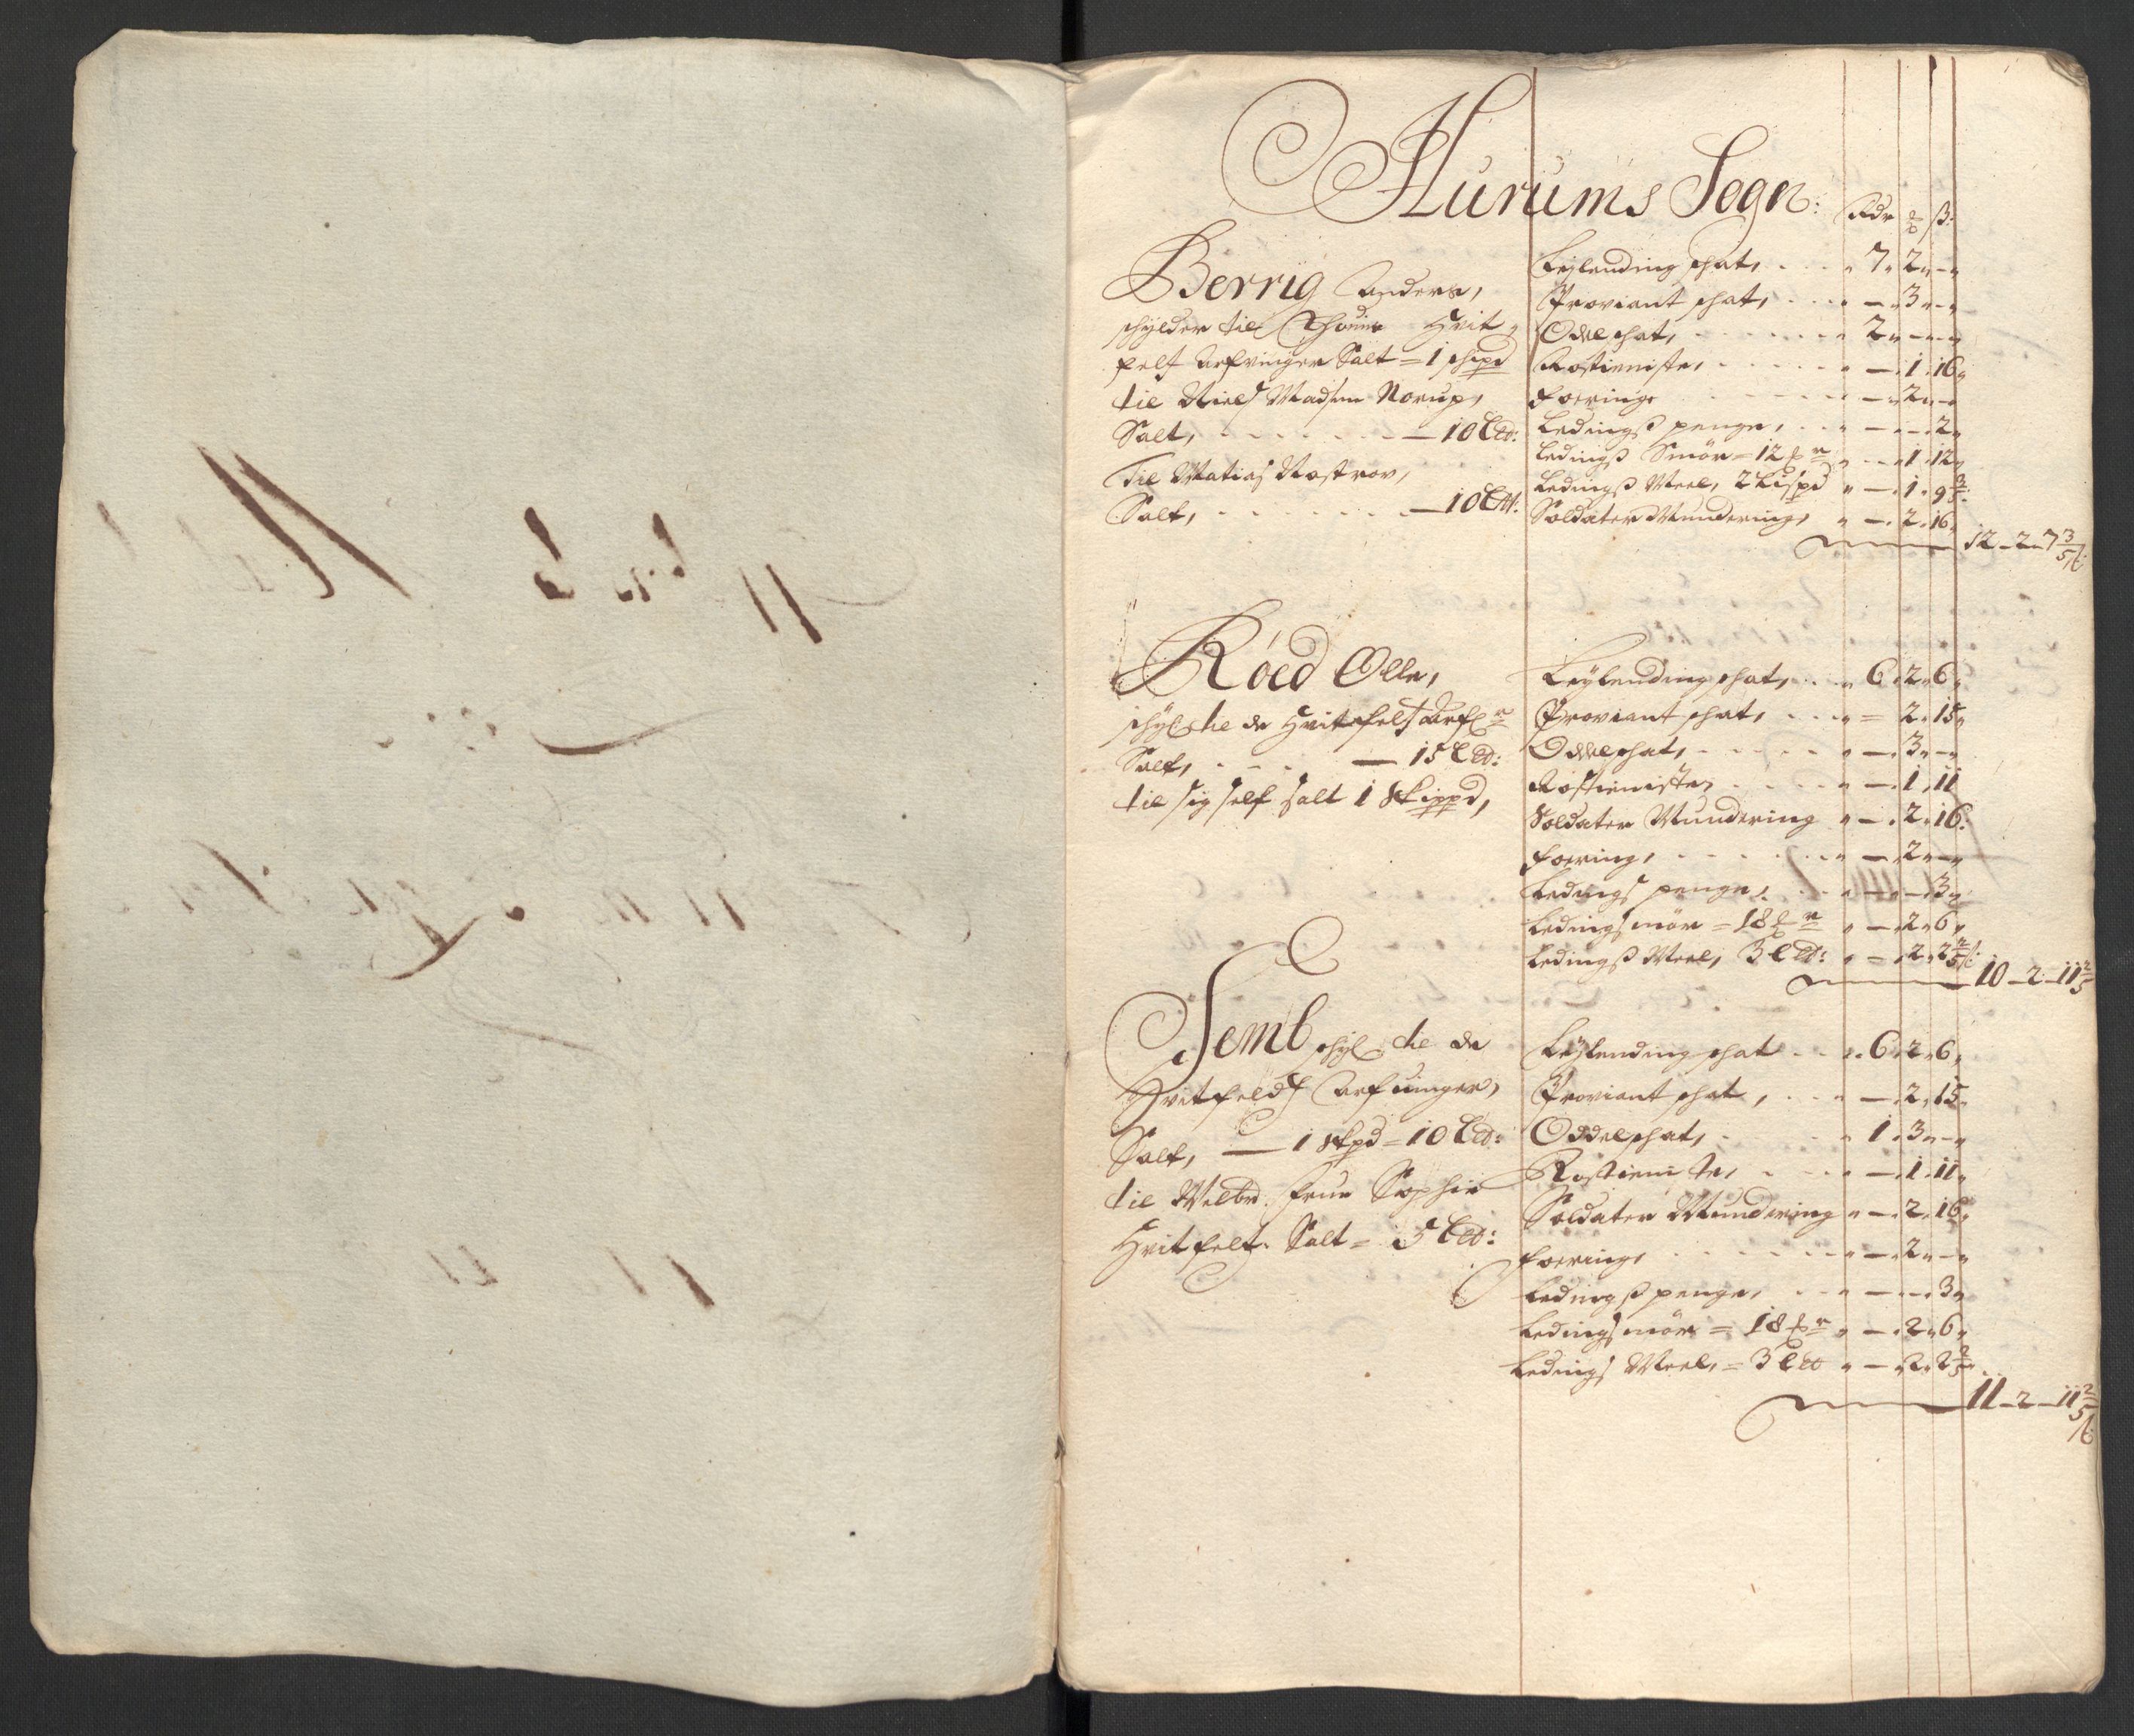 Hurums Sogn:
Rdr ß:
Berrig Anders,
schylder til Hvit,
felt Arfvinger Salt = 1 schipd
til Niels Madsen Norup,
Salt, - - - - - - - 10 Ltt:
Til Matias Rostrov,
Salt, - - - - - - - 10 Ltt:
Leylending schat, . . . „ 7 „ 2 „ – „
Proviant schat, . . . . „ – „ 3 „ – „
Odel schat, . . . . . . „ 2 „ – „ – „
Rostieniste, . . . . . „ – „ 1 „ 16 „
Foering, . . . . . . . „ – „ 2 „ – „
Ledingß penge, . . . „ – „ – „ 2 „
Ledingß Smör = 12 „ – „ 1 „ 12 „
Ledingß Meel, 2 Lispd „ – „ 1 „ 9 3/5
Soldater Mundering, „ – „ 2 „ 16 „
12 – 2 – 7 3/5 ß:
Röed Olle,
schyl. tie de Hvitfelt Arf
Salt, - - - - — 15 Ltt:
til sig self salt 1 Skippd,
Leylending schat, . . . „ 6 „ 2 „ 6 „
Proviant schat, . . . „ = 2 „ 15 „
Oddel schat, . . . . . „ – „ 3 „ – „
Rostieniste, . . . . . „ – „ 1 „ 11
Soldater Mundering „ – „ 2 „ 16:
Foering, . . . . . . . „ – „ 2 „ – „
Ledings penge, . . . „ – „ – „ 3 „
Leding smör = 18 „ – „ 2 „ 6 „
Ledingß Meel, 3 Ltt: „ – „ 2 „ 2 2/5 ß:
10 – 2 – 11 2/5
Semb schyl. tie de
Hvitfeldt Arfuinger,
Salt, — 1 Skpd = 10 Ltt:
til Velbr. Frue Sophie
Hvitfelt. Salt = 5 Ltt:
Leylending schat . . . „ 6 „ 2 „ 6 „
Proviant schat, . . . „ – „ 2 „ 15 „
Oddel schat, . . . . „ 1 „ 3 „ – „
Rostieniste, . . . . „ – „ 1 „ 11 „
Soldater Mundering „ – „ 2 „ 16 „
Foering, . . . . . . „ – „ 2 „ – „
Ledingß penge, . . „ – „ – „ 3 „
Leding smör = 18 „ – „ 2 „ 6 „
Ledings Meel, = 3 Ltt „ – „ 2 „ 2 2/5 „
11 – 2 – 11 2/5 ß: